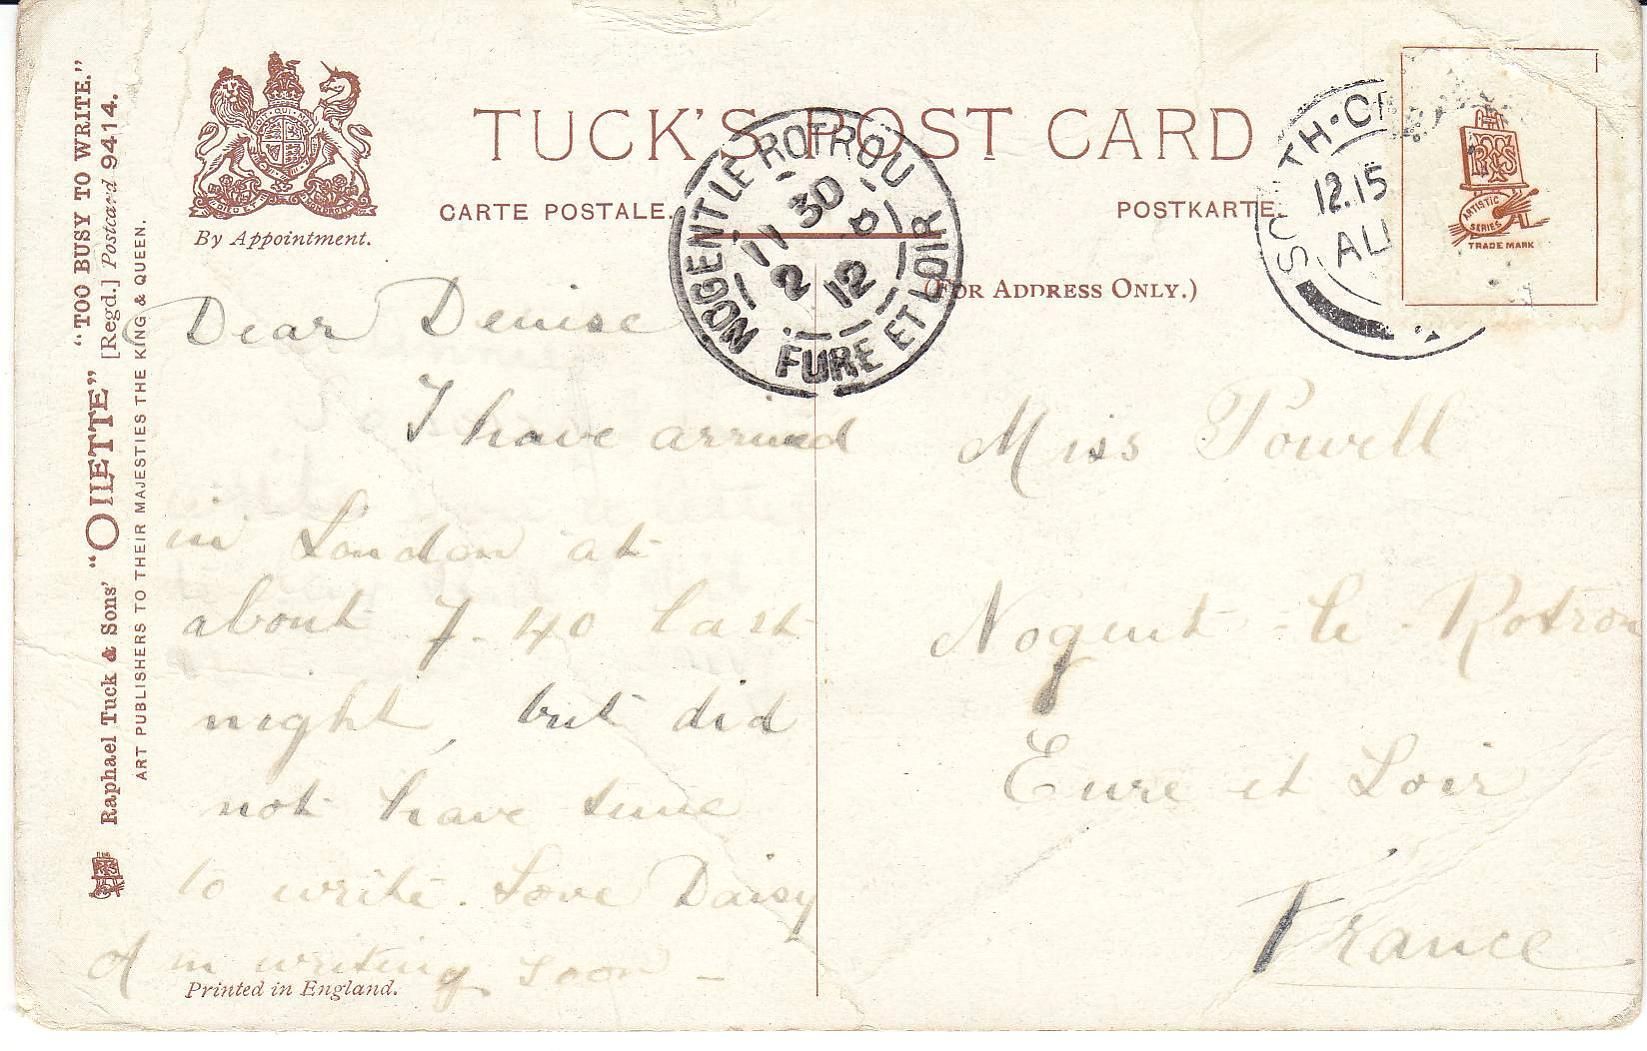 "TOO BUSY TO WRITE."
Raphael Tuck & Sons' "OILETTE" [Regd.] Postcard 9414.
ART PUBLISHERS TO THEIR MAJESTIES THE KING & QUEEN.
By Appointment.
TUCK'S POST CARD
CARTE POSTALE.
POSTKARTE.
(FOR ADDRESS ONLY.)
NOGENT LE ROTROU
11 30
2 8
12
EURE ET LOIR
12.15
AU
ARTISTIC
SERIES
TRADE MARK
Dear Denise
I have arrived
in London at
about 7-40 last
night, but did
not have time
to write. Love Daisy
writing soon -
Printed in England.
Miss Powell
Nogent-le-Rotrou
Eure et Loir
France.